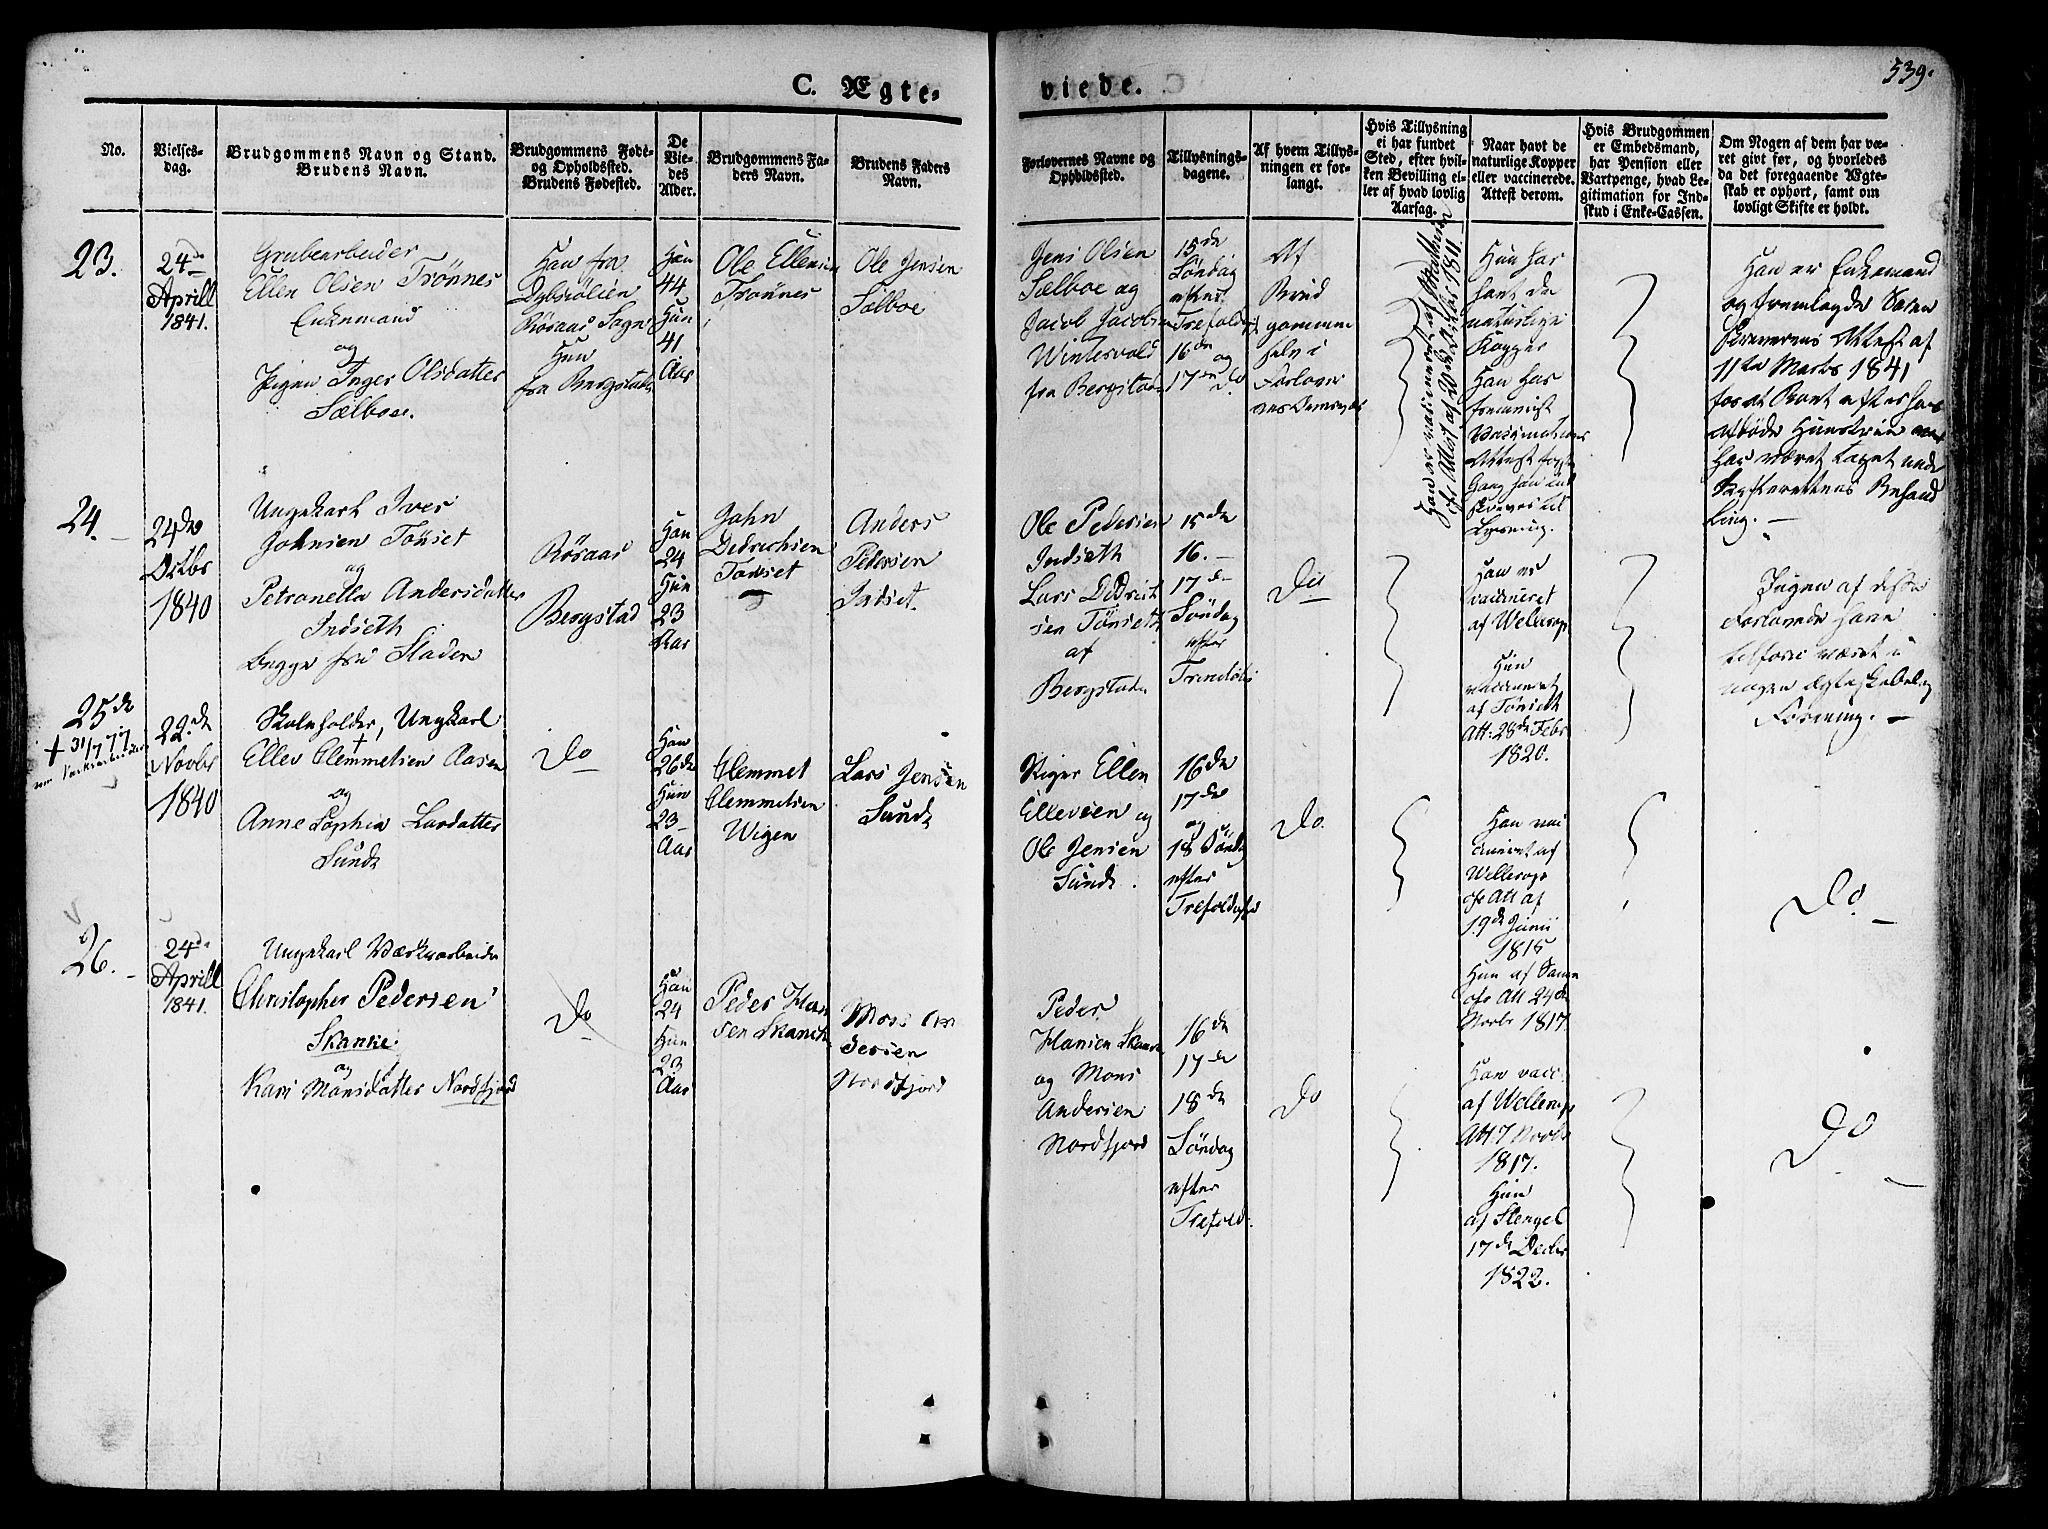 539.
C. Ægte-
viede.
No.
Vielses-
dag.
Brudgommens Navn og Stand.
Brudens Navn.
Brudgommens Føde-
og Opholdssted.
Brudens Fødested.
De
Vie-
des
Alder.
Brudgommens Fa-
ders Navn.
Brudens Faders
Navn.
Forlovernes Navne og
Opholdssted.
Tillysnings-
dagene.
Af hvem Tillys-
ningen er for-
langt.
Hvis Tillysning
ei har fundet
Sted, efter hvil-
ken Bevilling el-
ler af hvad lovlig
Aarsag.
Naar havt de
naturlige Kopper
eller vaccinerede.
Attest derom.
Hvis Brudgommen
er Embedsmand,
har Pension eller
Vartpenge, hvad Le-
gitimation for Ind-
skud i Enke-Cassen.
Om Nogen af dem har væ-
ret givt før, og hvorledes
da det foregaaende Ægte-
skab er ophørt, samt om
lovligt Skifte er holdt.
23.
24de
Aprill
1841.
Grubearbeider
Ellen Olsen Trönnes
Enkemand
og
Pigen Inger Olsdatter
Sælboe.
Han fra
Röraas Sogn
Hun
fra Bergstaden
Han
44
Hun
41
Aar
Ole Ellensen
Tronnes
Ole Jensen
Sælboe
Jens Olsen
Sælboe og
Jacob Jacobsen
Wintervold
fra Bergstaden
15de
Söndag
efter
Trefoldigh
16de og
17de Do
Af
Brud
gommen
selv i
Forlover
nes
Hun har
havt de
naturlige
Kopper
Han har
fremvist
Attest
Han er vaccineret af
Han er Enkemand
og fremlagde Soren
skriverens Attest af
11te Marts 1841
for at Boet efter hans
afdöde Hustrue
har været taget under
Skifterettens Behand
ling. —
24.
24de
Octbr
1840
Ungekarl Iver
Johnsen Tönset
og
Petronella Andersdatter
Indseth
begge fra Staden
Röraas
Bergstad
Han
24
Hun
23
Aar
John
Dedrichsen
Tönset
Anders
Pedersen
Indset.
Ole Pedersen
Indseth
Lars Dedrich
sen Tönseth
af
Bergstaden
15de
16. —
17de
Söndag
efter
Do
Han er
vaccineret
af Wellerop
Hun
vaccineret
af Tönseth
Att: 28de Febr
1820.
Ingen af disse
Forlovede have
tilforn været i
nogen Ægteskabelig
Forening. —
25de
+ 31/7 77
22de
Novbr
1840
Skoleholder, Ungkarl
Ellev Clemmetsen Aasen
og
Anne Sophia Larsdatter
Sundt
Do
Han
26de
Hun
23
Aar
Clemmet
Clemmetsen
Wigen
Lars Jensen
Sundt
Ellen
Ellevsen og
Ole Jensen
Sundt.
16de
17de
og
18 Söndag
efter
Trefoldighed
Do.
Han vac
cineret af
Wellerop
Att af
19de Junii
1815
Hun af Samme
Att 24de
Novbr 1817
Do.
26.
24de
Aprill
1841.
Ungekarl Værksarbeider
Christopher Pedersen
Skanke
og
Kari Monsdatter Nordfjord
Do
Han
24
Hun
23
Aar
Peder Han
sen Skanch
Mons An
dersen
Nordfjord
Peder
Hansen Skanke
og Mons
Andersen
Nordfjord
16de
17de
18de
Söndag
efter
Trefold:
Do
Han vacc:
af Wellerop
Att 7 Novbr
1817.
Hun
af Stengel
17de Decbr
1822.
Do